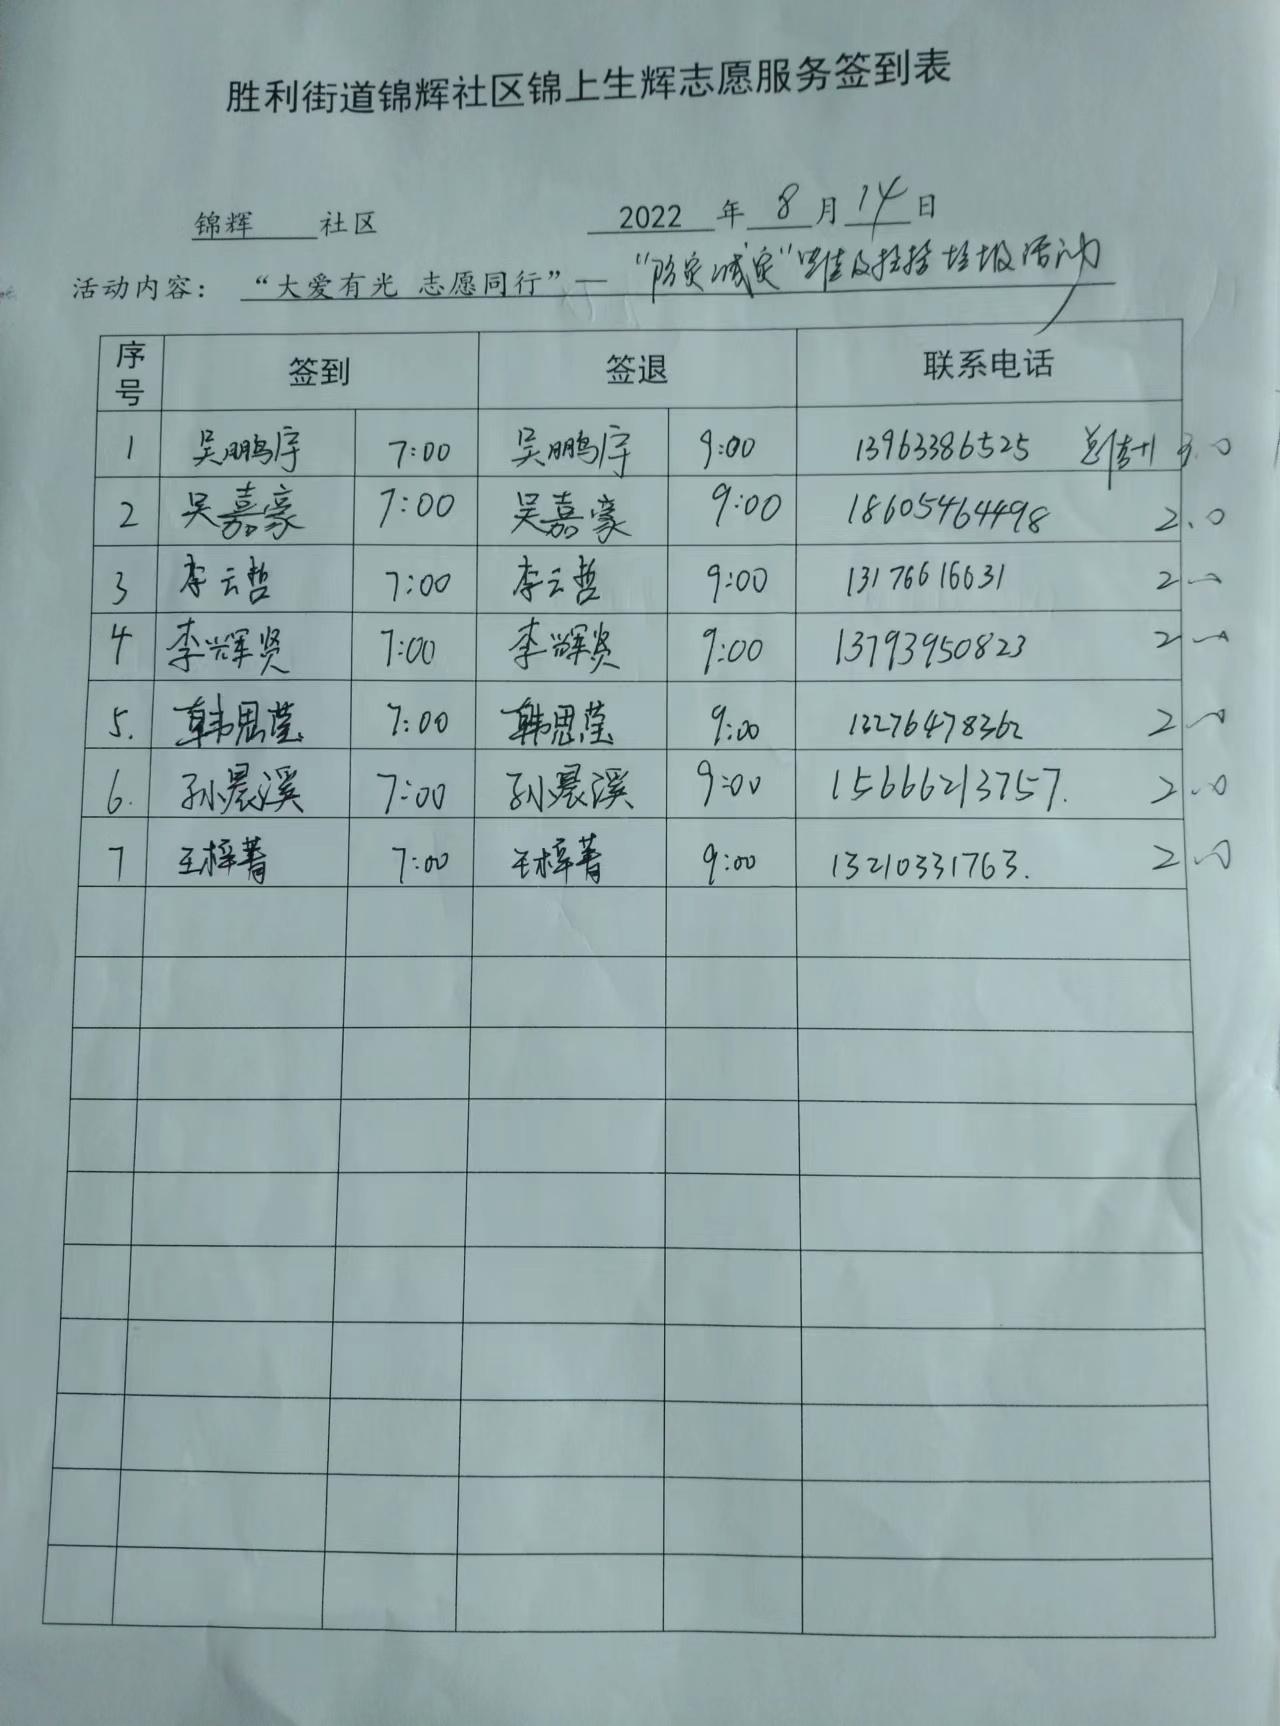 胜利街道锦辉社区锦上生辉志愿服务签到表
锦辉 社区 2022 年 8 月 14 日
活动内容： “大爱有光 志愿同行”— “防灾减灾” 及捡拾垃圾活动
序号 签到 签退 联系电话
1 吴鹏宇 7:00 吴鹏宇 9:00 13963386525 3.0
2 吴嘉豪 7:00 吴嘉豪 9:00 18605464498 2.0
3 李云哲 7:00 李云哲 9:00 13176616631 2.0
4 李辉贤 7:00 李辉贤 9:00 13793950823 2.0
5. 韩思莹 7:00 韩思莹 9:00 13276478362 2.0
6. 孙晨溪 7:00 孙晨溪 9:00 15666213757. 2.0
7 王梓菁 7:00 王梓菁 9:00 13210331763. 2.0